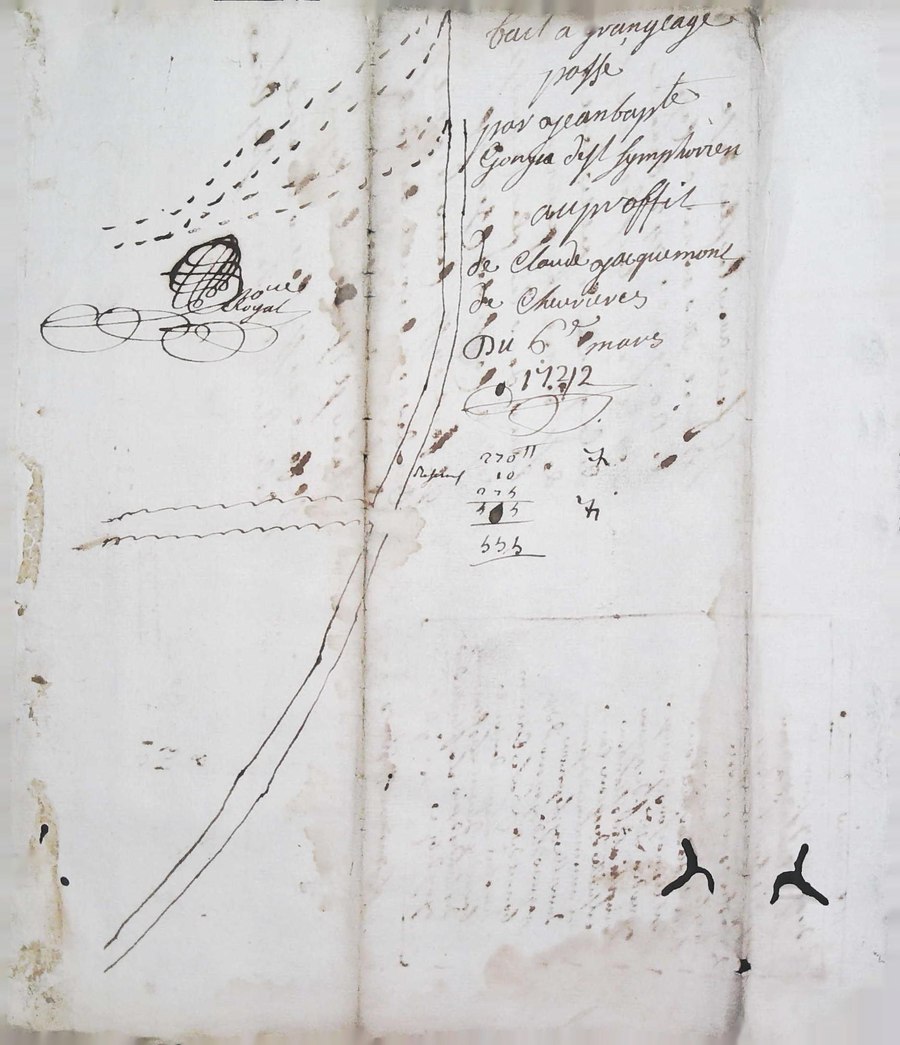 bail a grangeage
passé
par jean bapte
Gonyn de st Symphorien
au proffit
de Claude jacquemont
de Chevrieres
Du 6e mars
1742
Royal
270 ₶
10
275
555